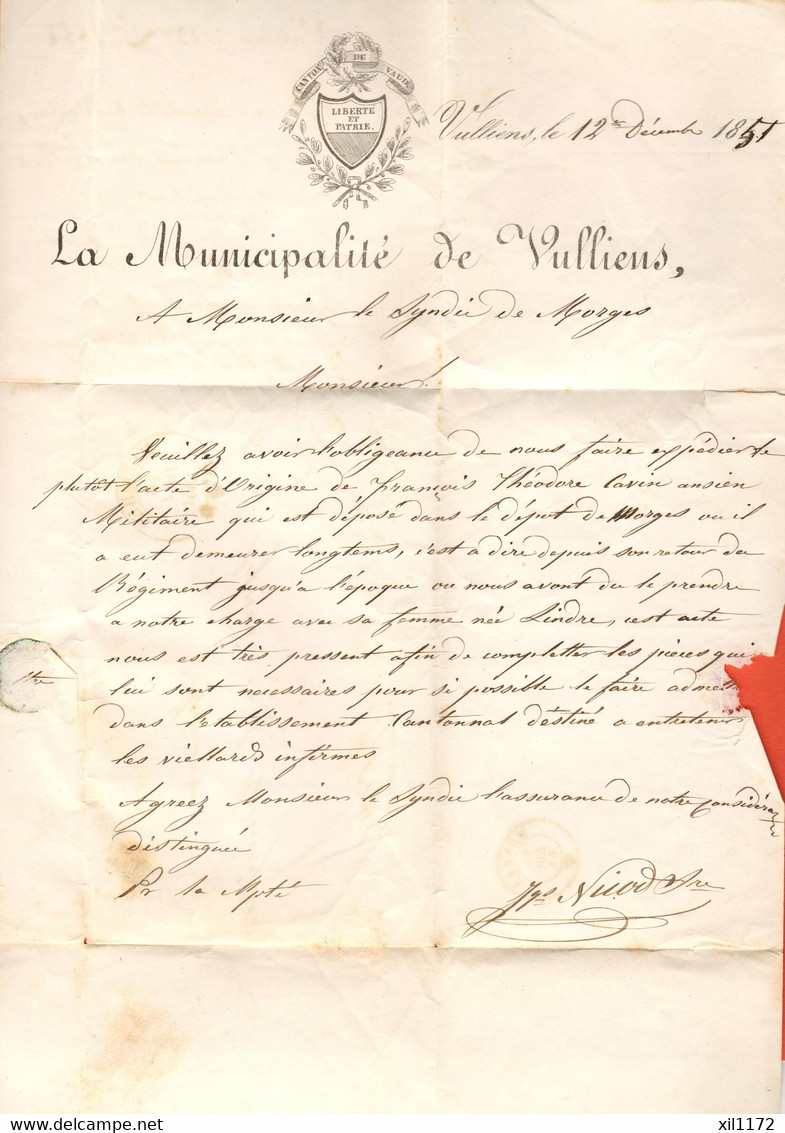 CANTON DE VAUD
LIBERTE
ET
PATRIE.
Vulliens, le 12 Décembre 1851
La Municipalité de Vulliens,
A Monsieur le Syndic de Morges
Monsieur!
Veuillez avoir l'obligeance de nous faire expédier le
plutôt l'acte d'Origine de François Théodore Cavin ansien
Militaire qui est déposé dans le dépot de Morges ou il
a eut demeurer longtems, c'est a dire depuis son retour du
Régiment jusqu'a l'époque ou nous avont du le prendre
a notre charge avec sa femme née Lindre, cest acte
nous est très pressent afin de completter les pieces qui
lui sont necessaires pour si possible le faire
dans l'etablissement Cantonnal déstiné a entretenir
les viellards infirmes
Agreez Monsieur le Syndic l'assurance de notre
distinguée
Pr la Mpté
Nicod Sre
delcampe.net
xil1172